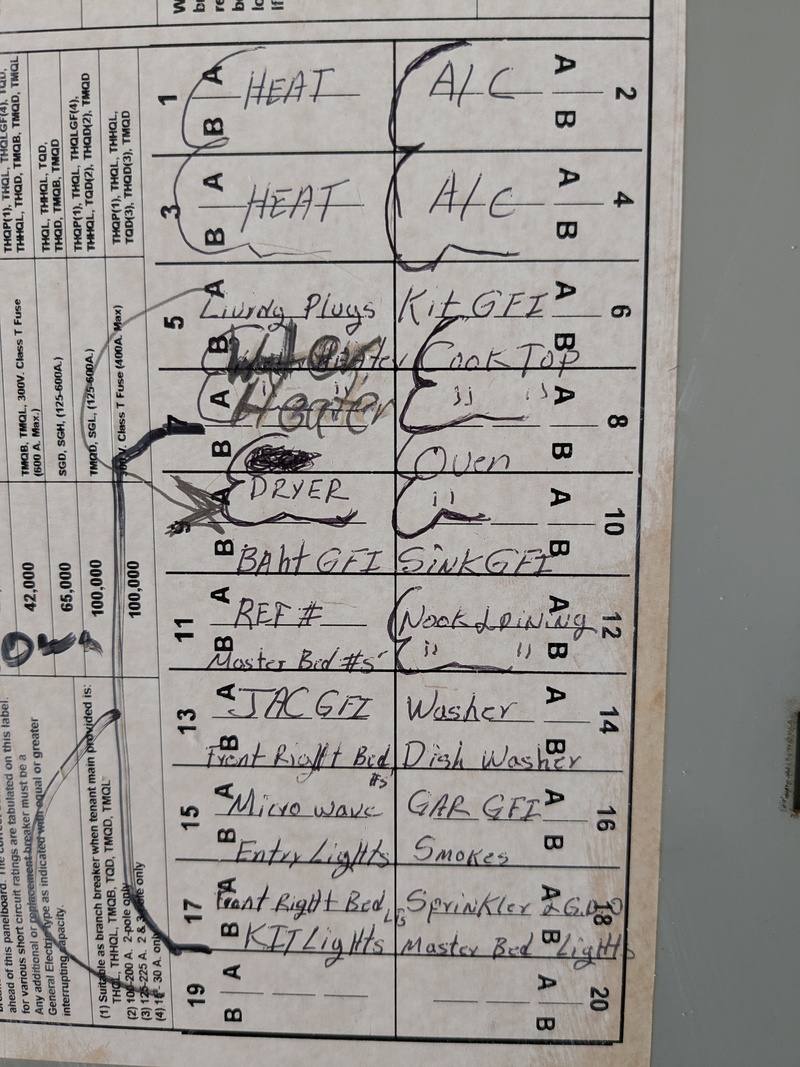 THQP(1), THQL, THQLGF(4), TQD,
THHQL, THQD, TMQB, TMQD, TMQL
THQL, THHQL, TQD,
THQD, TMQB, TMQD
THQP(1), THQL, THQLGF(4),
THHQL, TQD(2), THQD(2), TMQD
THQP(1), THQL, THHQL,
TQD(3), THQD(3), TMQD
TMQB, TMQL, 300V. Class T Fuse
(600 A. Max.)
SGD, SGH, (125-600A.)
TMQD, SGL, (125-600A.)
V. Class T Fuse (400A. Max)
42,000
65,000
100,000
100,000
ahead of this panelboard.
for various short circuit ratings are tabulated on this label.
Any additional or replacement breaker must be a
General Electric type as indicated with equal or greater
interrupting capacity.
(1) Suitable as branch breaker when tenant main provided is:
THQL, THHQL, TMQB, TQD, TMQD, TMQL
(2) 100-200 A. 2-pole only
(3) 125-225 A. 2 & 3 pole only
(4) 15 - 30 A. only
1 A B HEAT
A/C A B 2
3 A B HEAT
A/C A B 4
5 A Living Plugs
Kit GFI A 6
B Water Heater
Cook Top B
7 A Heater
" " A 8
B
Oven B
9 A DRYER
" A 10
B BAht GFI
SiNK GFI B
11 A REF #
Nook & DiNiNg A 12
B Master Bed #s
" " B
13 A JAC GFI
Washer A 14
B Front Right Bed #s
Dish Washer B
15 A Micro wave
GAR GFI A 16
B Entry Lights
Smokes B
17 A Front Right Bed Lts
Sprinkler & G.D.O A 18
B KIT Lights
Master Bed Lights B
19 A B
A B 20